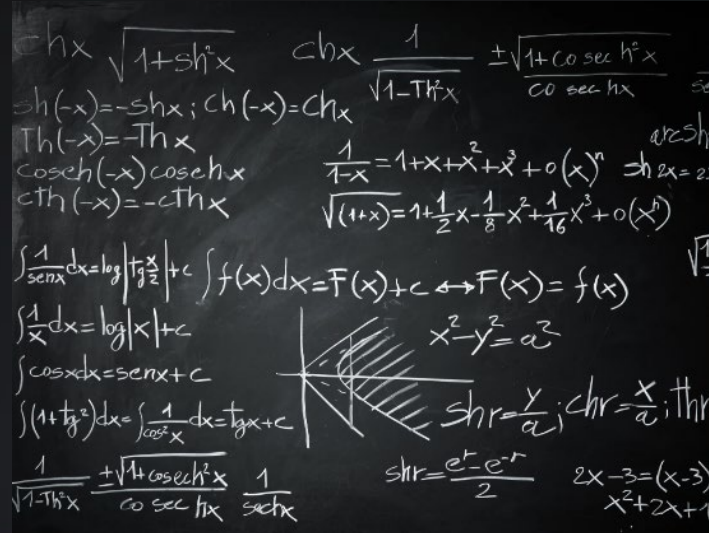 chx √1+sh²x chx 1/√1-Th²x ±√1+cosech²x/cosechx
sh(-x)=-shx; ch(-x)=chx
Th(-x)=-Thx
coseh(-x)cosehx
cth(-x)=-cthx
1/1-x=1+x+x²+x³+o(x)ⁿ
arcsh
sh2x=2
√(1+x)=1+1/2x-1/8x²+1/16x³+o(xʰ)
∫1/senx dx=log|tg x/2|+c
∫f(x)dx=F(x)+c↔F(x)=f(x)
∫1/x dx=log|x|+c
x²-y²=a²
∫cosxdx=senx+c
∫(1+tg²)dx=∫1/cos²x dx=tgx+c
shr=y/a; chr=x/a; thr
1/√1-Th²x ±√1+cosech²x/cosechx 1/sechx
shr=eʳ-e⁻ʳ/2
2x-3=(x-3)
x²+2x+1